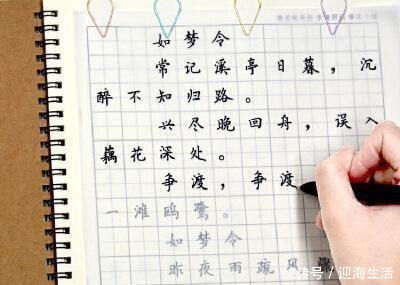 如梦令
常记溪亭日暮，沉
醉不知归路。
兴尽晚回舟，误入
藕花深处。
争渡，争渡
一滩鸥鹭。
如梦令
昨夜雨疏风骤
搜狐号/迎海生活